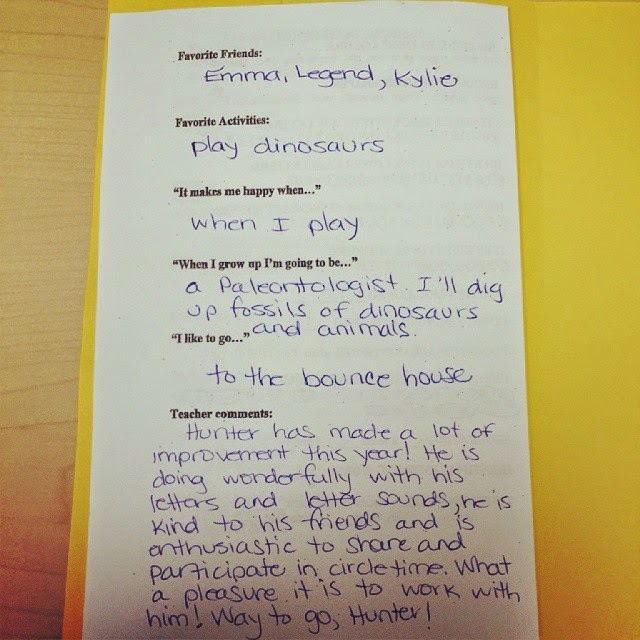 Favorite Friends:
Emma, Legend, Kylie
Favorite Activities:
play dinosaurs
“It makes me happy when...”
when I play
“When I grow up I’m going to be...”
a Paleontologist. I'll dig
up fossils of dinosaurs
and animals.
“I like to go...”
to the bounce house
Teacher comments:
Hunter has made a lot of
improvement this year! He is
doing wonderfully with his
letters and letter sounds, he is
kind to his friends and is
enthusiastic to share and
participate in circletime. What
a pleasure it is to work with
him! Way to go, Hunter!